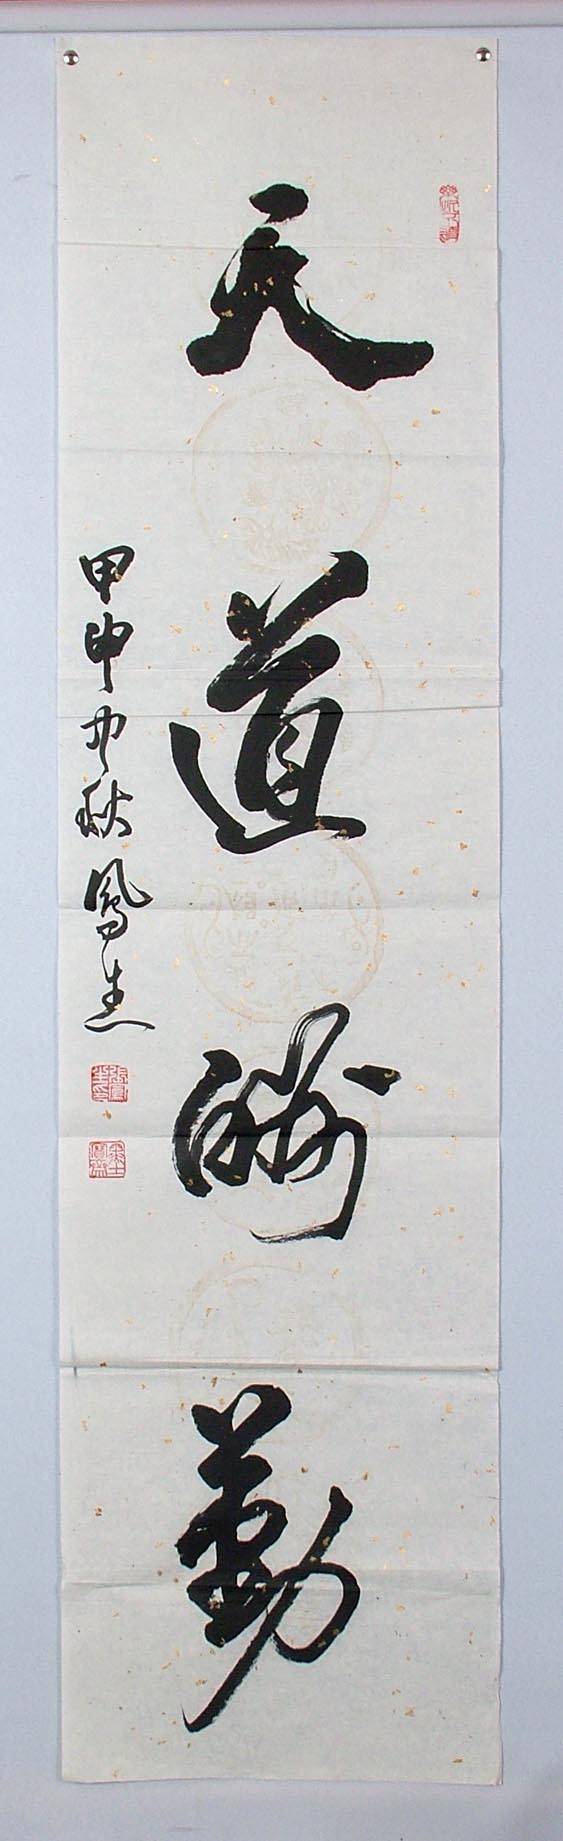 天道酬勤
甲申中秋鳳生